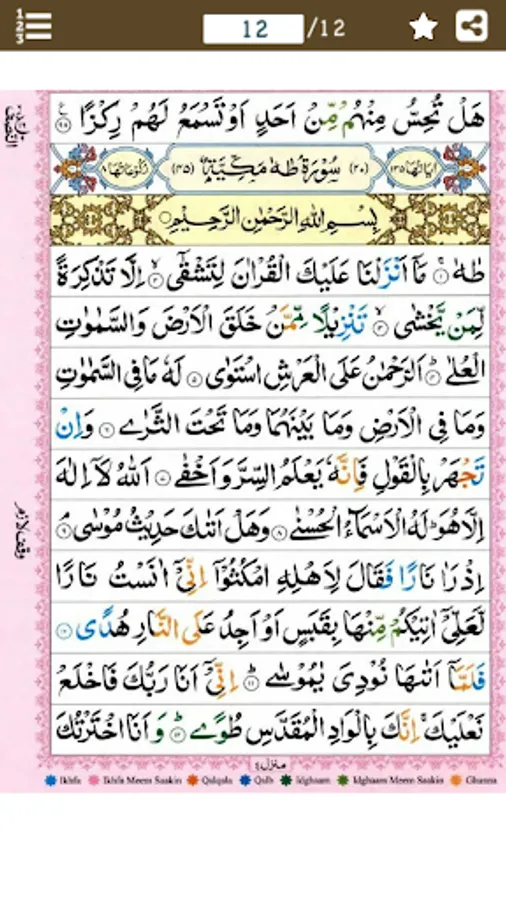 123
12 /12
هَلْ تُحِسُّ مِنْهُمْ مِّنْ اَحَدٍ اَوْ تَسْمَعُ لَهُمْ رِكْزًا ۝۹۸
اٰیَاتُهَا ۱۳۵ (۲۰) سُوْرَةُ طٰهٰ مَكِّیَّةٌ (۴۵) رُكُوْعَاتُهَا ۸
بِسْمِ اللهِ الرَّحْمٰنِ الرَّحِیْمِ
طٰهٰ ۝۱ مَاۤ اَنْزَلْنَا عَلَیْكَ الْقُرْاٰنَ لِتَشْقٰۤی ۝۲ اِلَّا تَذْكِرَةً
لِّمَنْ یَّخْشٰی ۝۳ تَنْزِیْلًا مِّمَّنْ خَلَقَ الْاَرْضَ وَالسَّمٰوٰتِ
الْعُلٰی ۝۴ اَلرَّحْمٰنُ عَلَی الْعَرْشِ اسْتَوٰی ۝۵ لَهٗ مَا فِی السَّمٰوٰتِ
وَمَا فِی الْاَرْضِ وَمَا بَیْنَهُمَا وَمَا تَحْتَ الثَّرٰی ۝۶ وَاِنْ
تَجْهَرْ بِالْقَوْلِ فَاِنَّهٗ یَعْلَمُ السِّرَّ وَاَخْفٰی ۝۷ اَللهُ لَاۤ اِلٰهَ
اِلَّا هُوَ ؕ لَهُ الْاَسْمَآءُ الْحُسْنٰی ۝۸ وَهَلْ اَتٰىكَ حَدِیْثُ مُوْسٰی ۝۹
اِذْ رَاٰ نَارًا فَقَالَ لِاَهْلِهِ امْكُثُوْۤا اِنِّیْۤ اٰنَسْتُ نَارًا
لَّعَلِّیْۤ اٰتِیْكُمْ مِّنْهَا بِقَبَسٍ اَوْ اَجِدُ عَلَی النَّارِ هُدًی ۝۱۰
فَلَمَّاۤ اَتٰىهَا نُوْدِیَ یٰمُوْسٰی ۝۱۱ اِنِّیْۤ اَنَا رَبُّكَ فَاخْلَعْ
نَعْلَیْكَ ۚ اِنَّكَ بِالْوَادِ الْمُقَدَّسِ طُوًی ۝۱۲ وَاَنَا اخْتَرْتُكَ
وقف لازم
منزل ۴
Ikhfa Ikhfa Meem Saakin Qalqala Qalb Idghaam Idghaam Meem Saakin Ghunna